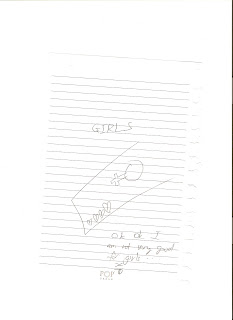 GIRLS
Ok Ok I
am not very good
POP